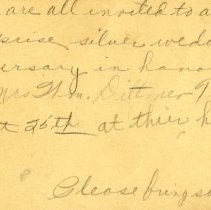 are all invited to a
prise silver wedd
ersary in hono
Mrs Wm. Dittmer
t 25th at their h
Please bring sa